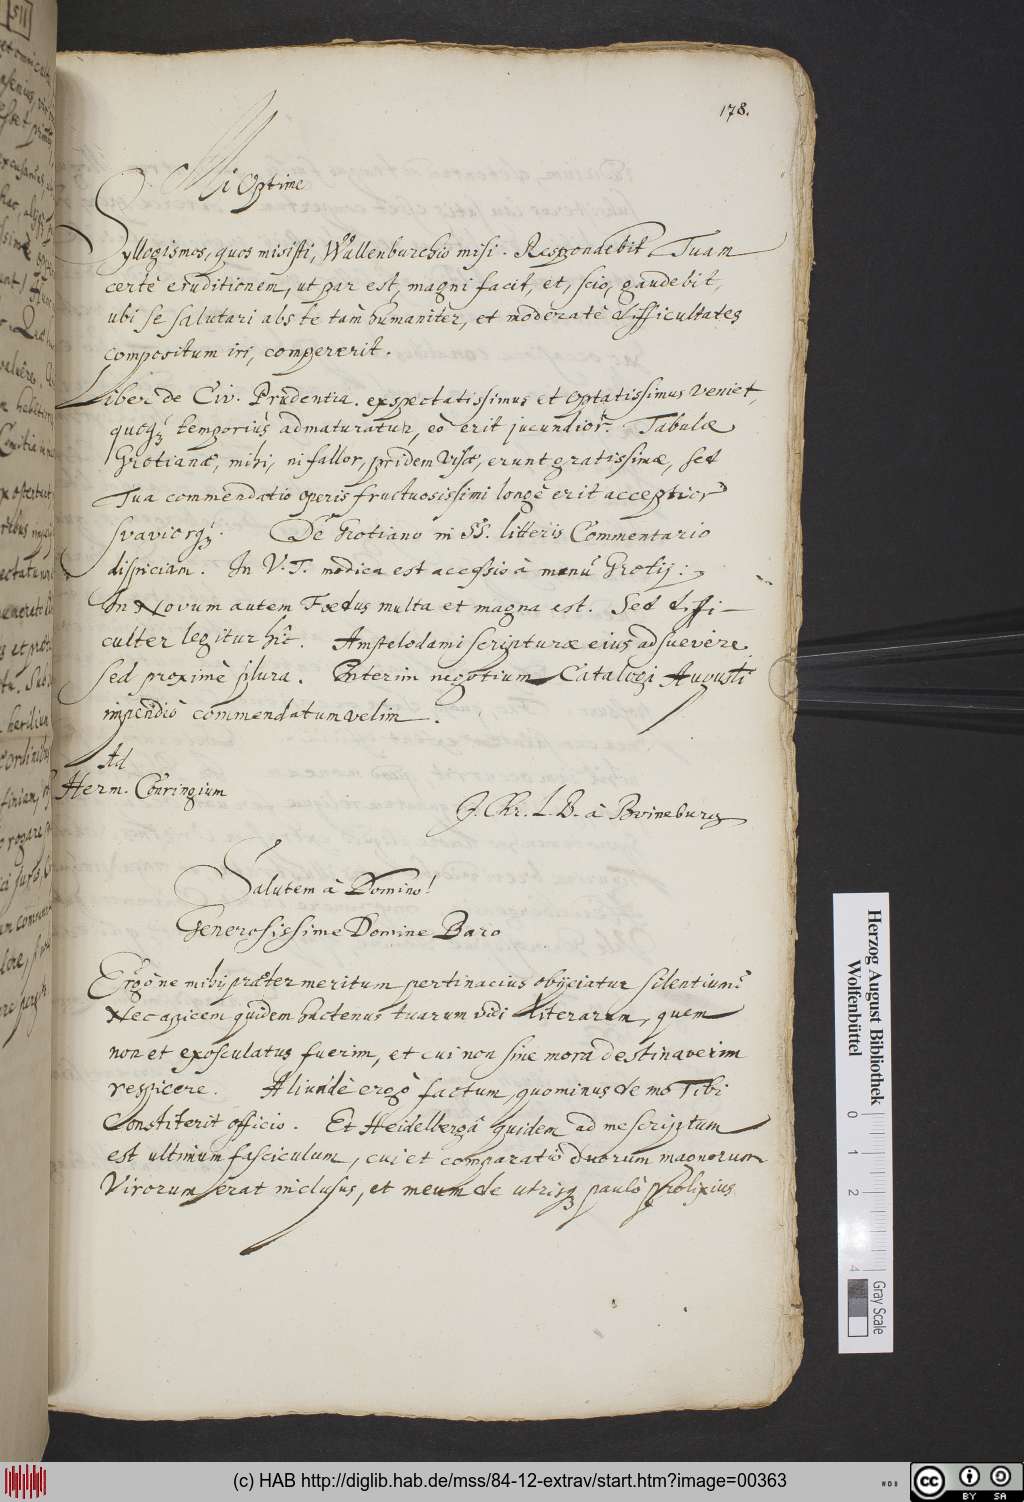 178.
Mi Optime
Syllogismos, quos misisti, Wallenburchio misi. Respondebit. Tuam
certè eruditionem, ut par est, magni facit, et, scio, gaudebit,
ubi se salutari abs te tàm humanitèr, et moderatè difficultates
compositum iri, compererit.
Liber de Civ. Prudentia. exspectatissimus et optatissimus veniet,
quoq; temporiùs admaturatur, eò erit jucundior. Tabulæ
Grotianæ, mihi, ni fallor, pridem visæ, erunt gratissimæ, sed
Tua commendatio operis fructuosissimi longè erit acceptior
svaviorq;. De Grotiano in SS. litteris Commentario
dispiciam. In V. T. modica est accessio à manu Grotij:
In Novum autem Foedus multa et magna est. Sed diffi-
culter legitur hîc. Amstelodami scripturæ ejus adsuevere.
Sed proximè plura. Interim negotium Catalogi Augusti
impendiò commendatum velim.
Ad
Herm. Conringium
J. Chr. L. B. à Boineburg
Salutem à Domino!
Generosissime Domine Baro
Ergò ne mihi præter meritum pertinacius objiciatur silentium?
Nec apicem quidem hactenus tuarum vidi Literarum, quem
non et exosculatus fuerim, et cui non sine mora destinaverim
respicere. Aliundè ergò factum, quominus de mo Tibi
Constiterit officio. Et Heidelbergâ quidem ad me scriptum
est ultimum fasciculum, cui et comparatio duorum magnorum
Virorum erat inclusus, et meum de utrisq; paulò prolixius
511
Herzog August Bibliothek
Wolfenbüttel
0 1 2 4
Gray Scale
(c) HAB http://diglib.hab.de/mss/84-12-extrav/start.htm?image=00363
CC BY SA